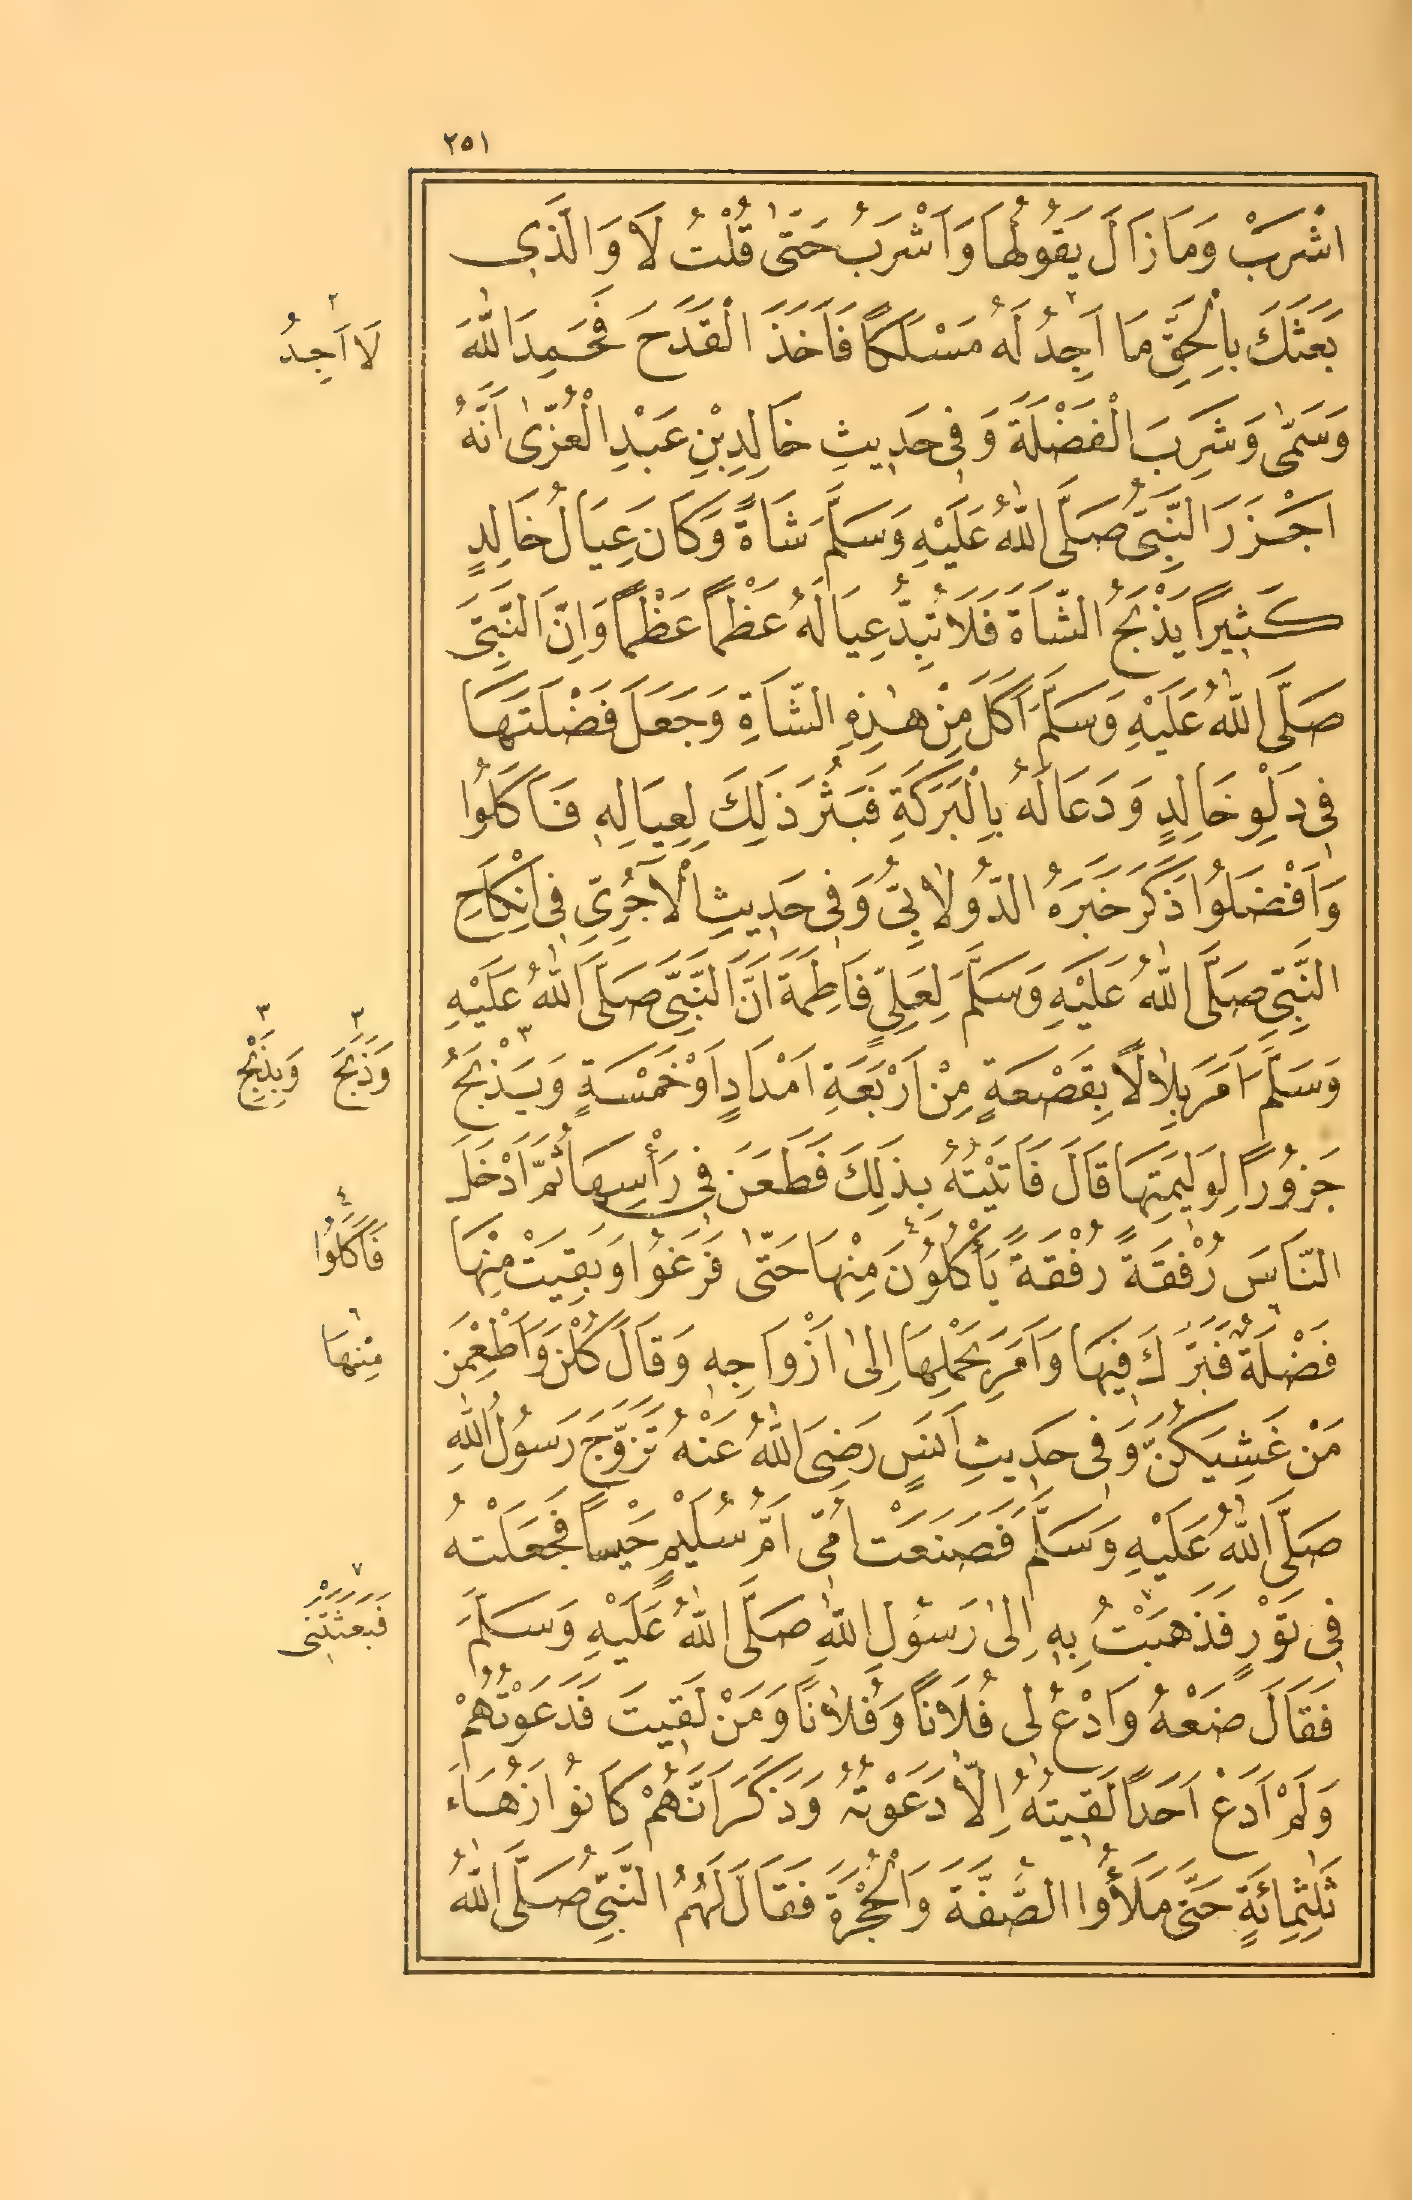 ٢٥١
اشْرَبْ وَمَا زَالَ يَقُولُهَا وَاَشْرَبُ حَتّٰى قُلْتُ لَا وَالَّذِى
بَعَثَكَ بِالْحَقِّ مَا اَجِدُ لَهُ مَسْلَكًا فَاَخَذَ الْقَدَحَ فَحَمِدَ اللّٰهَ
٢ لَا اَجِدُ
وَسَمّٰى وَشَرِبَ الْفَضْلَةَ وَفِى حَدِيثِ خَالِدِ بْنِ عَبْدِ الْعُزّٰى اَنَّهُ
اَجْزَرَ النَّبِىَّ صَلَّى اللّٰهُ عَلَيْهِ وَسَلَّمَ شَاةً وَكَانَ عِيَالُ خَالِدٍ
كَثِيرًا يَذْبَحُ الشَّاةَ فَلَا تُبِدُّ عِيَالَهُ عَظْمًا عَظْمًا وَاِنَّ النَّبِىَّ
صَلَّى اللّٰهُ عَلَيْهِ وَسَلَّمَ اَكَلَ مِنْ هٰذِهِ الشَّاةِ وَجَعَلَ فَضْلَتَهَا
فِى دَلْوِ خَالِدٍ وَدَعَا لَهُ بِالْبَرَكَةِ فَنَثَرَ ذَلِكَ لِعِيَالِهِ فَاَكَلُوا
وَاَفْضَلُوا ذَكَرَ خَبَرَهُ الدُّولَابِىُّ وَفِى حَدِيثِ الْآجُرِّىِّ فِى اِنْكَاحِ
النَّبِىِّ صَلَّى اللّٰهُ عَلَيْهِ وَسَلَّمَ لِعَلِىٍّ فَاطِمَةَ اَنَّ النَّبِىَّ صَلَّى اللّٰهُ عَلَيْهِ
وَسَلَّمَ اَمَرَ بِلَالًا بِقَصْعَةٍ مِنْ اَرْبَعَةِ اَمْدَادٍ اَوْ خَمْسَةٍ وَيَذْبَحُ
٣ وَذَبَحَ ٣ وَبِذَبْحِ
جَزُورًا لِوَلِيمَتِهَا قَالَ فَاَتَيْتُهُ بِذَلِكَ فَطَعَنَ فِى رَأْسِهَا ثُمَّ اَدْخَلَ
النَّاسَ رُفْقَةً رُفْقَةً يَأْكُلُونَ مِنْهَا حَتّٰى فَرَغُوا وَبَقِيَتْ مِنْهَا
٤ فَاَكَلُوا
فَضْلَةٌ فَبَرَّكَ فِيهَا وَاَمَرَ بِحَمْلِهَا اِلٰى اَزْوَاجِهِ وَقَالَ كُلْنَ وَاَطْعِمْنَ
٦ مِنْهَا
مَنْ غَشِيَكُنَّ وَفِى حَدِيثِ اَنَسٍ رَضِىَ اللّٰهُ عَنْهُ تَزَوَّجَ رَسُولُ اللّٰهِ
صَلَّى اللّٰهُ عَلَيْهِ وَسَلَّمَ فَصَنَعَتْ اُمِّى اُمُّ سُلَيْمٍ حَيْسًا فَجَعَلَتْهُ
فِى تَوْرٍ فَذَهَبْتُ بِهِ اِلٰى رَسُولِ اللّٰهِ صَلَّى اللّٰهُ عَلَيْهِ وَسَلَّمَ
٧ فَبَعَثَتْنِى
فَقَالَ ضَعْهُ وَادْعُ لِى فُلَانًا وَفُلَانًا وَمَنْ لَقِيتَ فَدَعَوْتُهُمْ
وَلَمْ اَدَعْ اَحَدًا لَقِيتُهُ اِلَّا دَعَوْتُهُ وَذَكَرَ اَنَّهُمْ كَانُوا زُهَاءَ
ثَلٰثِمِائَةٍ حَتّٰى مَلَأُوا الصُّفَّةَ وَالْحُجْرَةَ فَقَالَ لَهُمُ النَّبِىُّ صَلَّى اللّٰهُ